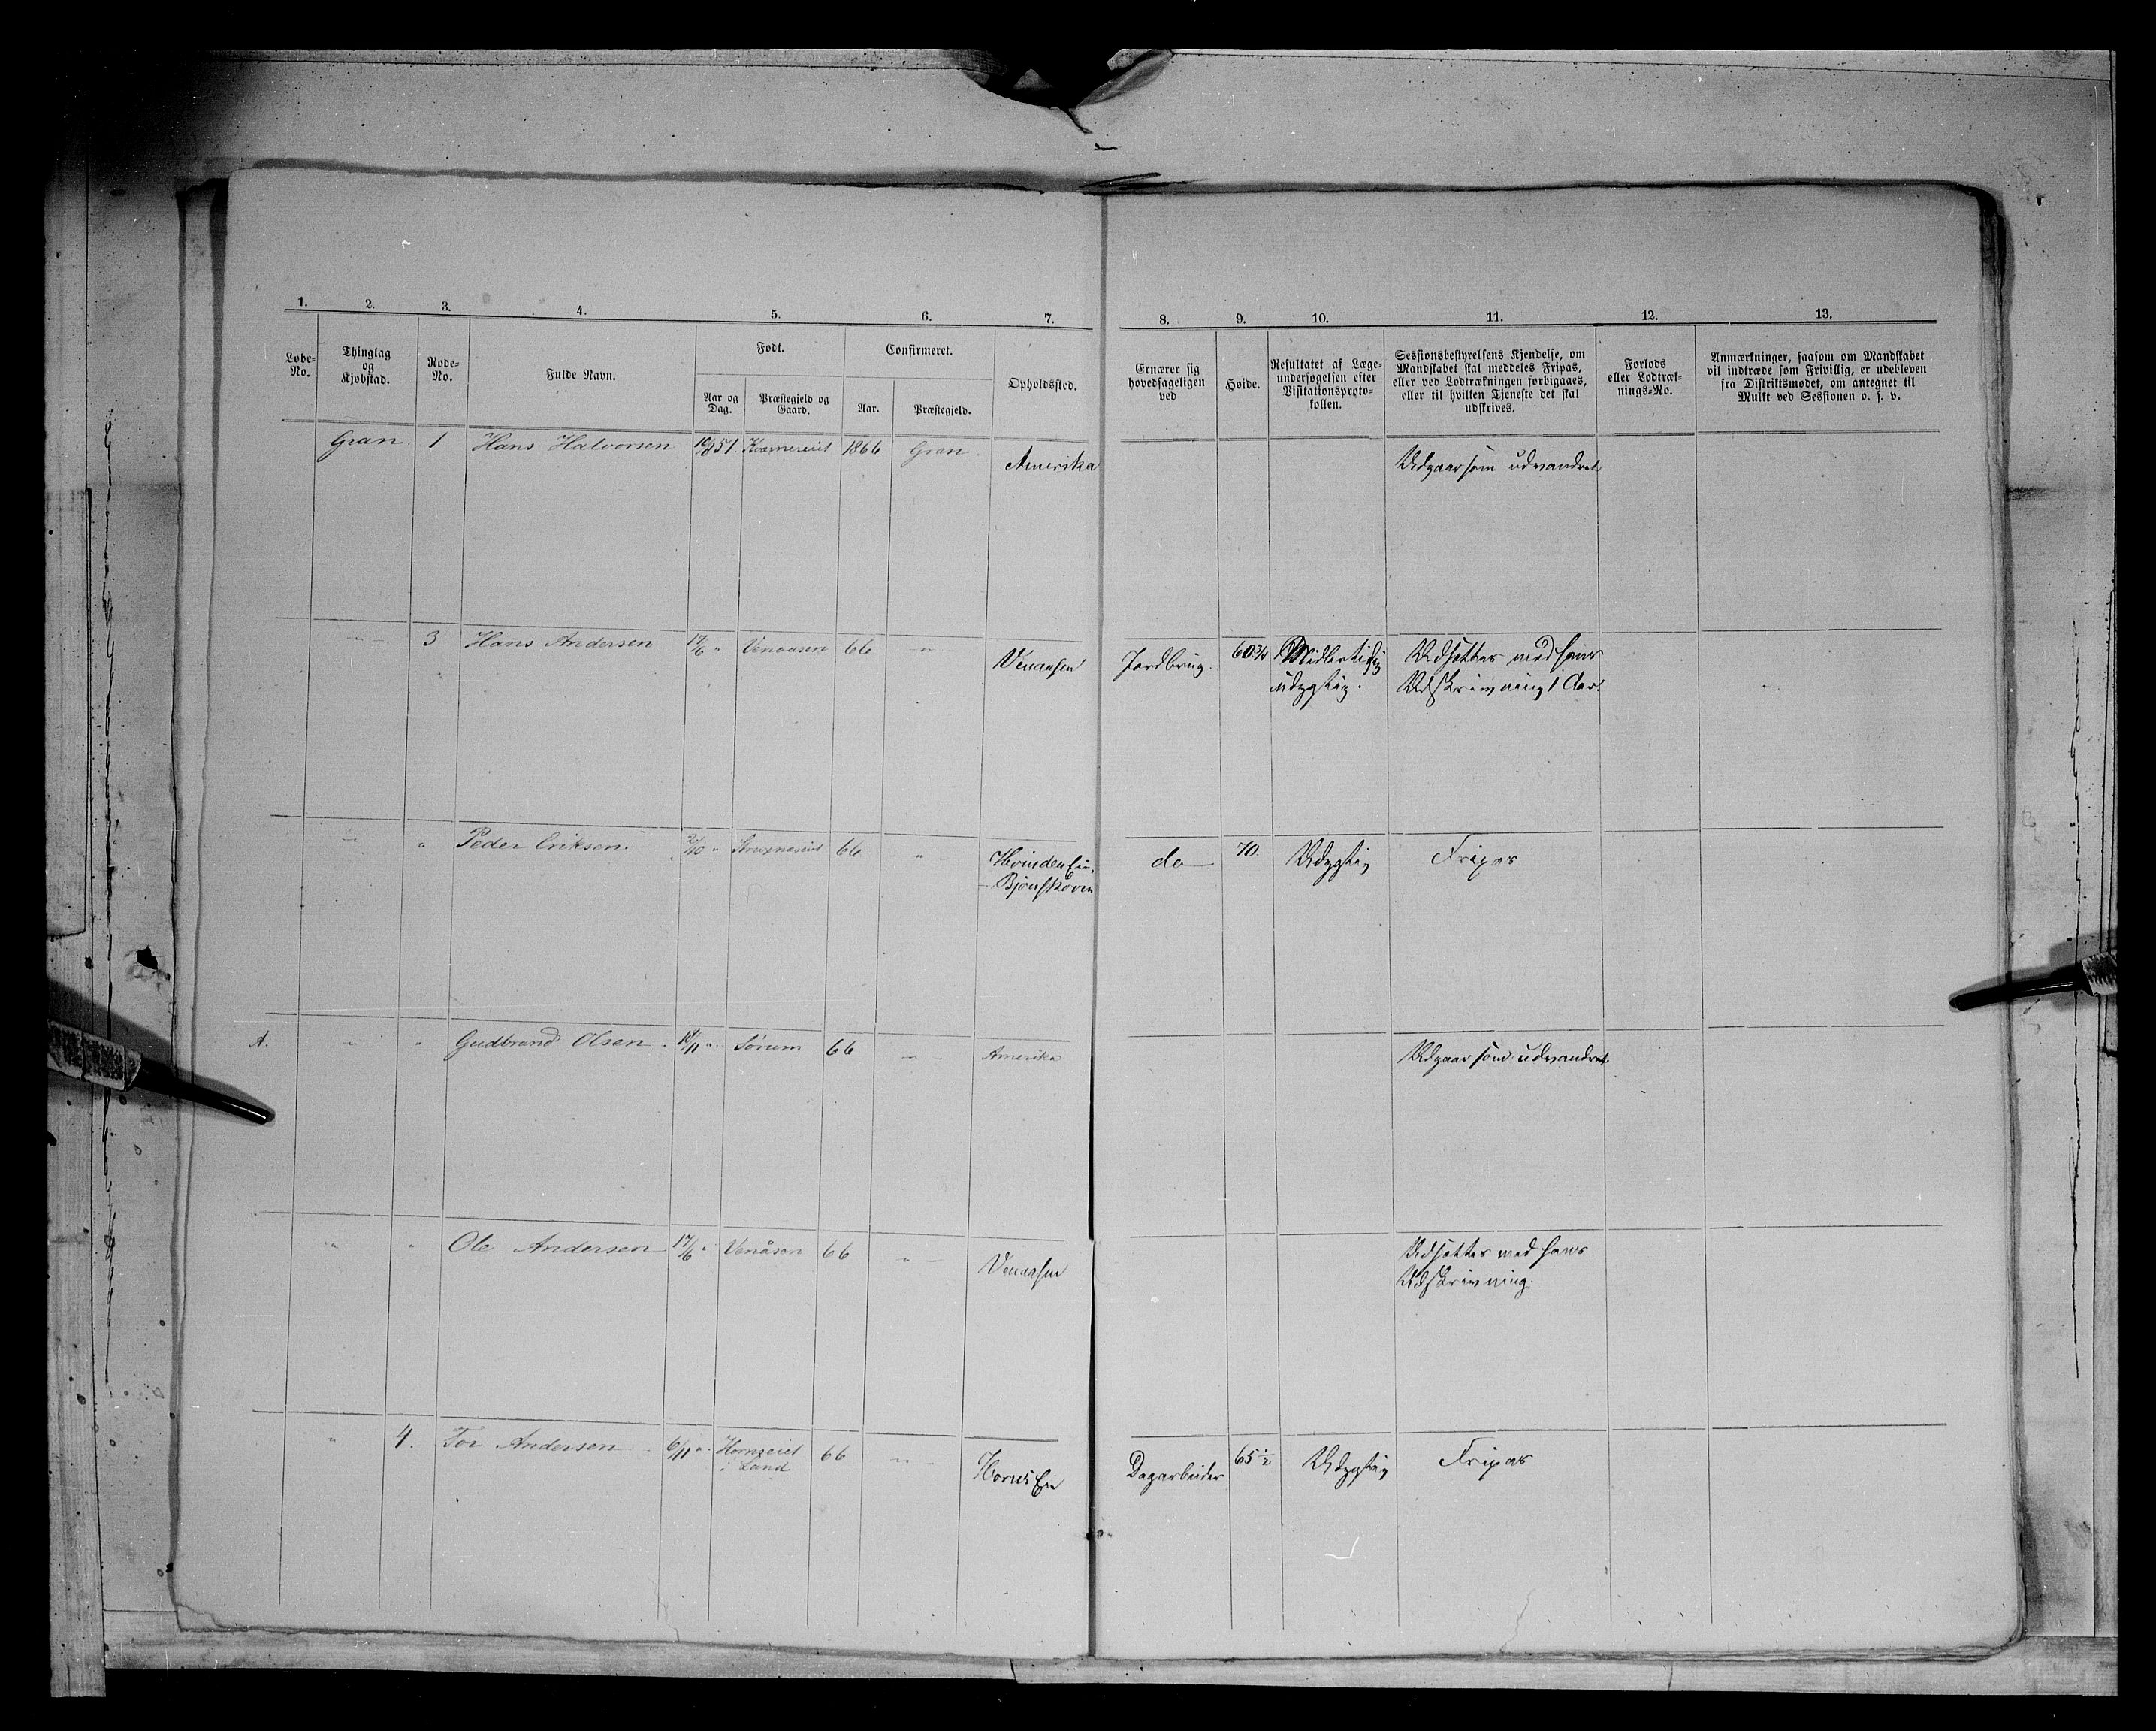 1. 2. 3. 4. 5. 6. 7. 8. 9. 10. 11. 12. 13.
Løbe-
No.
Thinglag
og
Kjøbstad.
Rode-
No.
Fulde Navn.
Født.
Aar og
Dag.
Præstegjeld og
Gaard.
Confirmeret.
Aar.
Præstegjeld.
Opholdssted.
Ernærer sig
hovedsageligen
ved
Høide.
Resultatet af Læge-
undersøgelsen efter
Visitationsproto-
kollen.
Sessionsbestyrelsens Kjendelse, om
Mandskabet skal meddeles Fripas,
eller ved Lodtrækningen forbigaaes,
eller til hvilken Tjeneste det skal
udskrives.
Forlods
eller Lodtræk-
nings-No.
Anmærkninger, saasom om Mandskabet
vil indtræde som Frivillig, er udebleven
fra Distriktsmødet, om antegnet til
Mulkt ved Sessionen o. s. v.
Gran. 1 Hans Halvorsen 51. Kværnereiet 1866 Gran Amerika Udgaar som udvandret
" 3 Hans Andersen 17/6 " Venaasen 66 " Venaasen Jordbrug. 60 3/4 Midlertidig Udsættes med hans
udygtig. Udskrivning 1 Aar.
" " Peder Eriksen. 2/10 " 66 " Hvinden Eie, do 70. Udygtig Fripas
Bjønskoven
A. " " Gudbrand Olsen. 18/11 " Sørum 66 " Amerika Udgaar som udvandret
" " Ole Andersen 17/6 " Venåsen 66 " Venaasen Udsættes med hans
Udskrivning.
" 4. Tor Andersen 6/11 " Hornseiet 66 " Horns Eie Dagarbeider 65 1/2 Udygtig Fripas
i Land